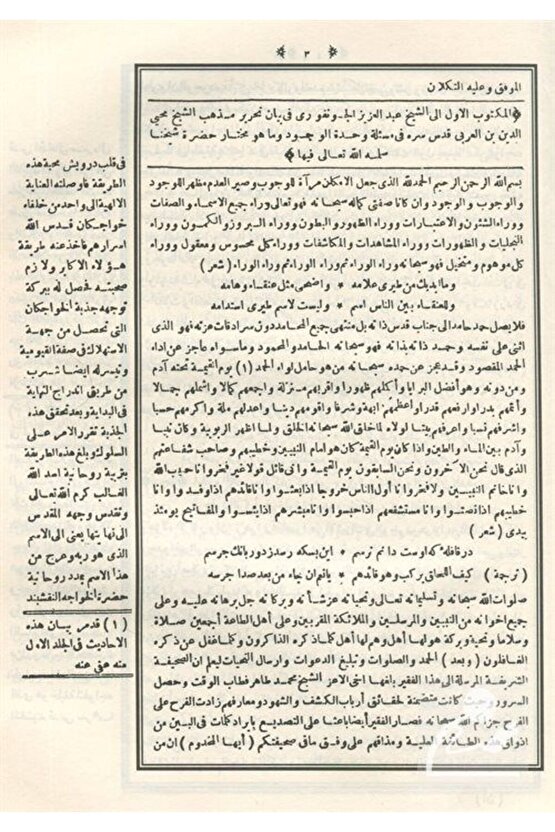 ﴿ ٣ ﴾
الموفق وعليه التكلان
﴿المكتوب الاول الى الشيخ عبد العزيز الجونفوری فی بيان تحرير مذهب الشيخ محيي
الدين بن العربی قدس سره فی مسئلة وحدة الوجود وما هو مختار حضرة شيخنا
سلمه الله تعالى فيها﴾
بسم الله الرحمن الرحيم الحمد لله الذی جعل الامكان مرآة للوجوب وصير العدم مظهر للوجود
والوجوب والوجود وان كانا صفتی كماله سبحانه فهو تعالى وراء جميع الاسماء والصفات
ووراء الشئون والاعتبارات ووراء الظهور والبطون ووراء البروز والكمون ووراء
التجليات والظهورات ووراء المشاهدات والمكاشفات ووراء كل محسوس ومعقول ووراء
كل موهوم ومتخيل فهو سبحانه وراء الوراء ثم وراء الوراء ثم وراء الوراء (شعر)
وما ابديك من طيری علامه * واضحى مثل عنقاء وهامه
وللعنقاء بين الناس اسم * وليست لاسم طيری استدامه
فلا يصل حمد حامد الى جناب قدس ذاته بل منتهى جميع المحامد دون سرادقات عزته فهو الذی
اثنى على نفسه وحمد ذاته بذاته فهو سبحانه الحامد والمحمود وما سواه عاجز عن اداء
الحمد المقصود وقد عجز عن حمده سبحانه من هو حامل لواء الحمد (١) يوم القيمة تحته آدم
ومن دونه وهو أفضل البرايا وأكملهم ظهورا واقربهم منزلة واجمعهم كمالا واشملهم جمالا
وأتمهم بدرا وارفعهم قدرا وأعظمهم ابهة وشرفا واقومهم دينا واعدلهم ملة واكرمهم حسبا
واشرفهم نسبا واعرقهم بيتا لولاه لما خلق الله سبحانه الخلق ولما اظهر الربوبية وكان نبيا
وآدم بين الماء والطين واذا كان يوم القيمة كان هو امام النبيين وخطيبهم وصاحب شفاعتهم
الذی قال نحن الآخرون ونحن السابقون يوم القيمة وانی قائل قولا غير فخر وانا حبيب الله
وانا خاتم النبيين ولا فخر وانا أول الناس خروجا اذا بعثوا وانا قائدهم اذا وفدوا وانا
خطيبهم اذا انصتوا وانا مستشفعهم اذا حبسوا وانا مبشرهم اذا يئسوا والمفاتيح يومئذ
بيدی (شعر)
در قافلهٔ كه اوست دانم نرسم * اين بسكه رسد ز دور بانك جرسم
(ترجمة) كيف اللحاق بركب وهو قائدهم * يا نعم ان جاء من بعد صدا جرسه
صلوات الله سبحانه وتسليماته تعالى وتحياته عز شأنه وبركاته جل برهانه عليه وعلى
جميع اخوانه من النبيين والمرسلين والملائكة المقربين وعلى أهل الطاعة أجمعين صلاة
وسلاما وتحية وبركة هو لها أهل وهم لها أهل كلما ذكره الذاكرون وكلما غفل عن ذكره
الغافلون (وبعد) الحمد والصلوات وتبليغ الدعوات وارسال التحيات ليعلم ان الصحيفة
الشريفة المرسلة الى هذا الفقير باغها اخی الاعز الشيخ محمد طاهر فطاب الوقت وحصل
السرور وحيث كانت متضمنة لحقائق أرباب الكشف والشهود ومعارفهم زادت الفرح على
الفرح جزاكم الله سبحانه فصار الفقير أيضا باعثا على التصديع بايراد كلمات فی البين من
اذواق هذه الطائفة العلية ومذاقهم على وفق ما فی صحيفتكم (أيها المخدوم) ان من
فی قلب درويش محبة هذه
الطريقة فاوصلته العناية
الالهية الى واحد من خلفاء
خواجكان قدس الله
اسرارهم فاخذ عنه طريقة
هؤلاء الاكابر ولازم
صحبته فحصل له ببركة
توجهه جذبة الخواجكان
التی تحصل من جهة
الاستهلاك فی صفة القيومية
وتيسر له ايضا شرب
من طريق اندراج النهاية
فی البداية وبعد تحقق هذه
الجذبة تقرر الامر على
السلوك وبلغ هذه الطريقة
بتربية روحانية اسد الله
الغالب كرم الله تعالى
وتقدس وجهه المقدس
الى نهايتها يعنی الى الاسم
الذی هو ربه وعرج من
هذا الاسم بمدد روحانية
حضرة الخواجه النقشبند
(١) قد مر بيان هذه
الاحاديث فی الجلد الاول
منه عفی عنه